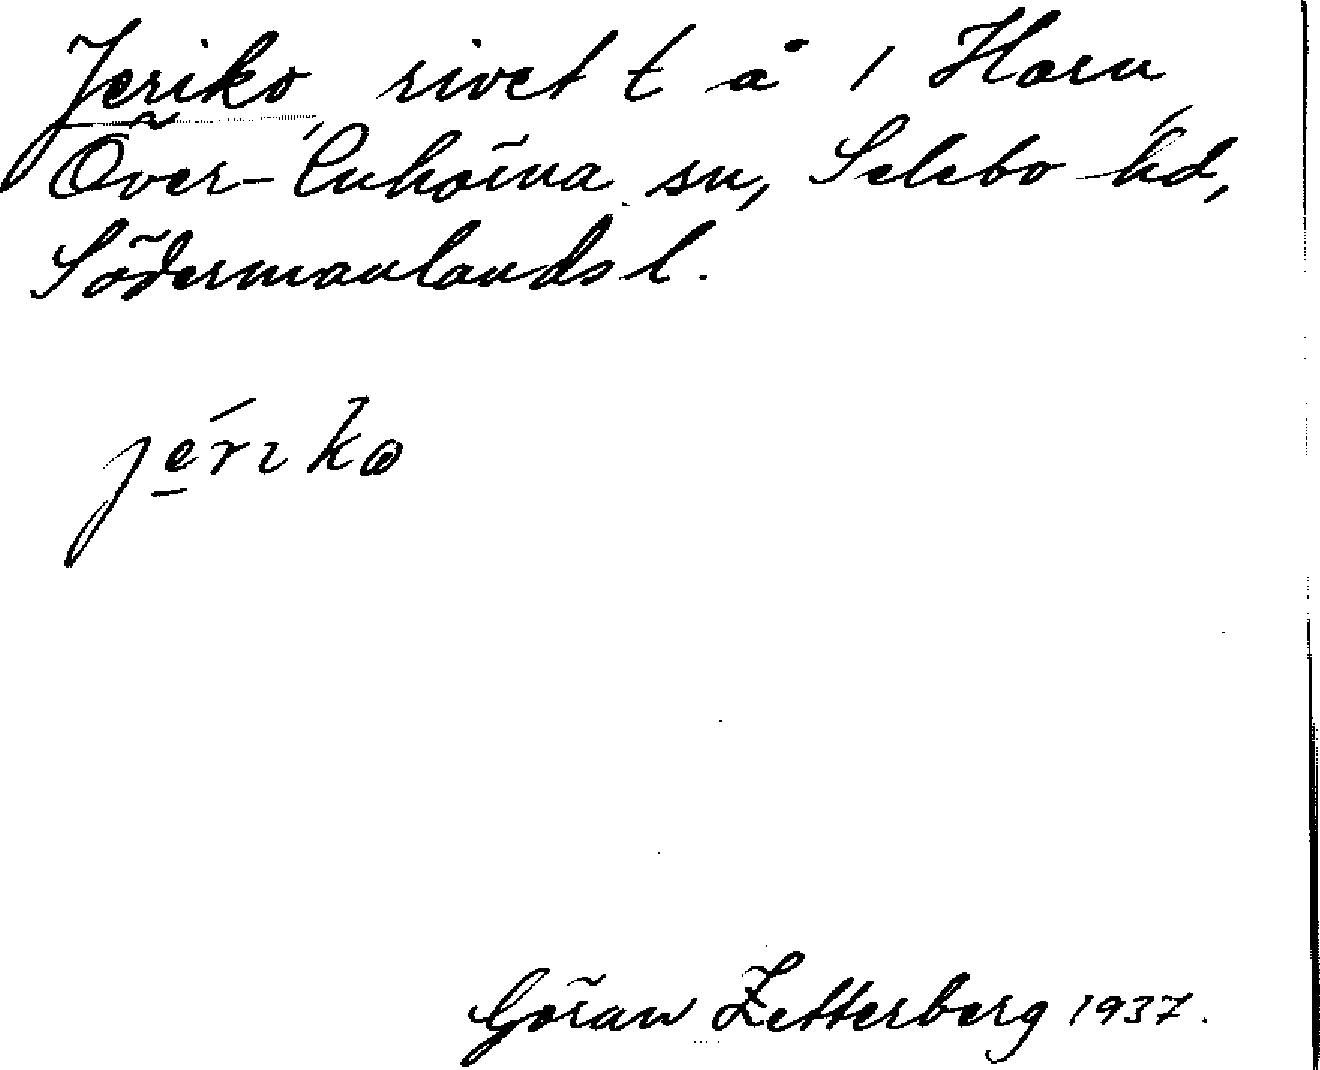 Jeriko, rivet t å 1 Horn,
Över-Enhörna sn, Selebo hd,
Södermanlands l.
jérɩkω
Göran Zetterberg 1937.